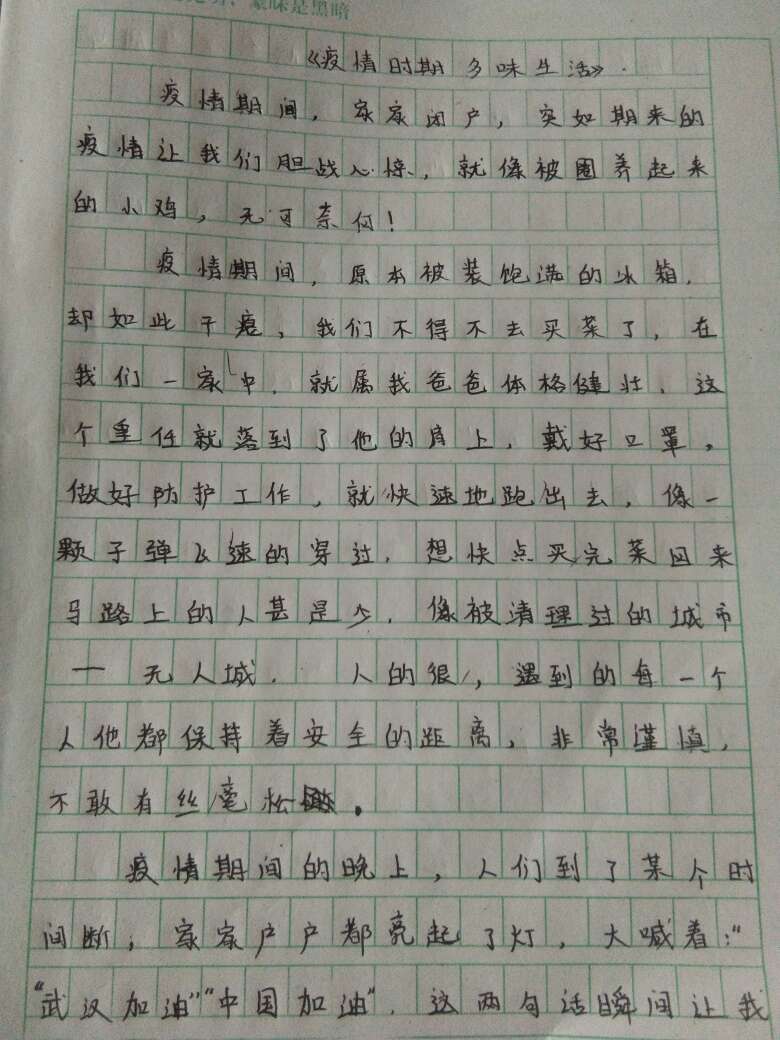 蒙昧是黑暗
《疫情时期多味生活》.
疫情期间，家家闭户，突如期来的
疫情让我们胆战心惊，就像被圈养起来
的小鸡，无可奈何！
疫情期间，原本被装饱满的冰箱，
却如此干瘪，我们不得不去买菜了，在
我们一家中，就属我爸爸体格健壮，这
个重任就落到了他的肩上，戴好口罩，
做好防护工作，就快速地跑出去，像一
颗子弹飞速的穿过，想快点买完菜回来
马路上的人甚是少，像被清理过的城市
一 无人城． 人的很少，遇到的每一个
人他都保持着安全的距离，非常谨慎，
不敢有丝毫松。
疫情期间的晚上，人们到了某个时
间断，家家户户都亮起了灯，大喊着：“
“武汉加油”“中国加油”．这两句话瞬间让我